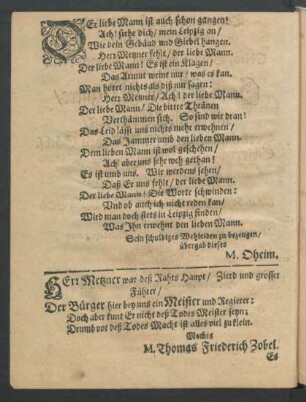 DEr liebe Mann ist auch schon gangen!
Ach! siehe dich/ mein Leipzig an/
Wie dein Gebäud und Giebel hangen.
Herr Metzner fehlt/ der liebe Mann.
Der liebe Mann! Es ist ein Klagen/
Das Armut weint nur/ was es kan.
Man höret nichts als diß nur sagen:
Herr Metzner/ Ach! der liebe Mann.
Der liebe Mann/ Die bittre Thränen
Verthämmen sich. So sind wir dran!
Das Leid lässt uns nichts mehr erwehnen/
Das Jammer umb den lieben Mann.
Dem lieben Mann ist wol geschehen/
Ach! aber uns sehr weh gethan!
Es ist umb uns. Wir werdens sehen/
Daß Er uns fehlt/ der liebe Mann.
Der liebe Mann! Die Worte schwinden:
Und ob auch ich nicht reden kan/
Wird man doch stets in Leipzig finden/
Was Ihn erwehnt den lieben Mann.
Sein schuldiges Wehleiden zu bezeugen/
übergab dieses
M. Oheim.
HErr Metzner war deß Rahts Haupt/ Zierd und grosser
Führer/
Der Bürger hier bey uns ein Meister und Regierer:
Doch aber kunt Er nicht deß Todes Meister seyn:
Drumb vor deß Todes Macht ist alles viel zu klein.
Machts
M. Thomas Friederich Zobel.
Es